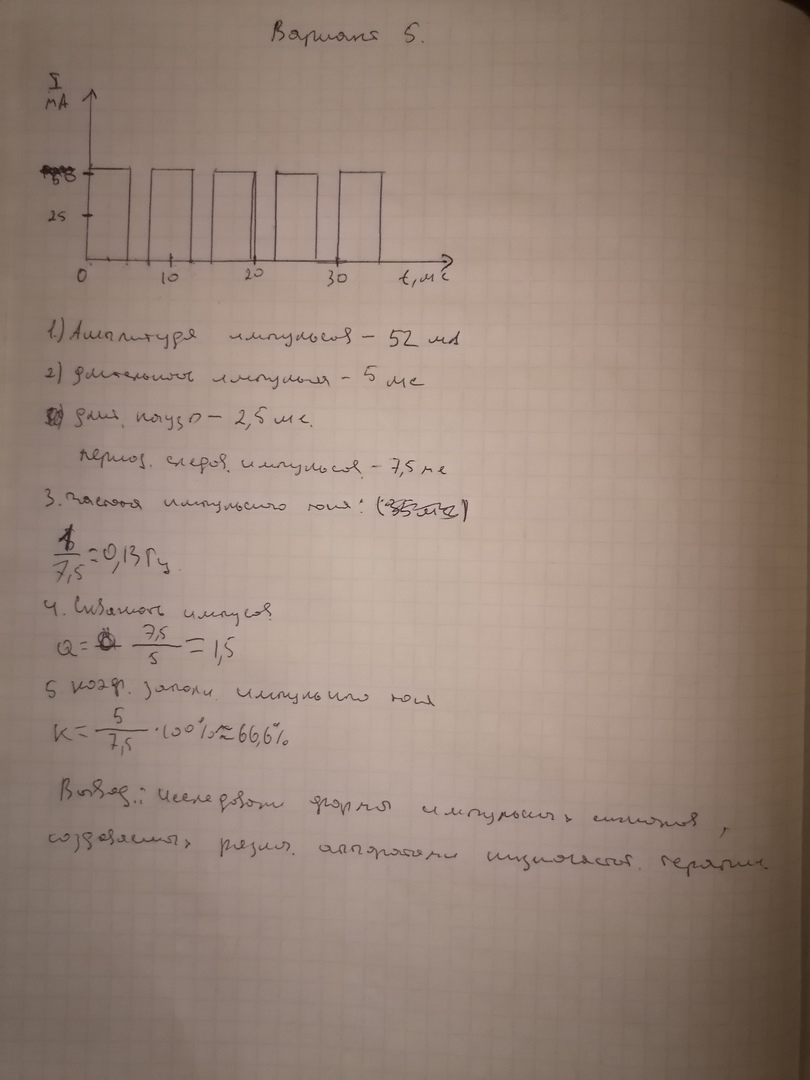 Вариант 5.
I
мА
50
25
0 10 20 30 t, мс
1.) Амплитуда импульсов – 52 мА
2) длительность импульса – 5 мс
длит. паузы – 2,5 мс.
период. следов. импульсов – 7,5 мс
3. Частота импульсного тока:
1/7,5 = 0,13 Гц.
4. Скважность импусов
Q = 7,5/5 = 1,5
5 коэф. заполн. импульсного тока
K = 5/7,5 · 100% ≈ 66,6%
Вывод.: исследовали формы импульсных сигналов,
создаваемых разл. аппаратами низкочастот. терапии.